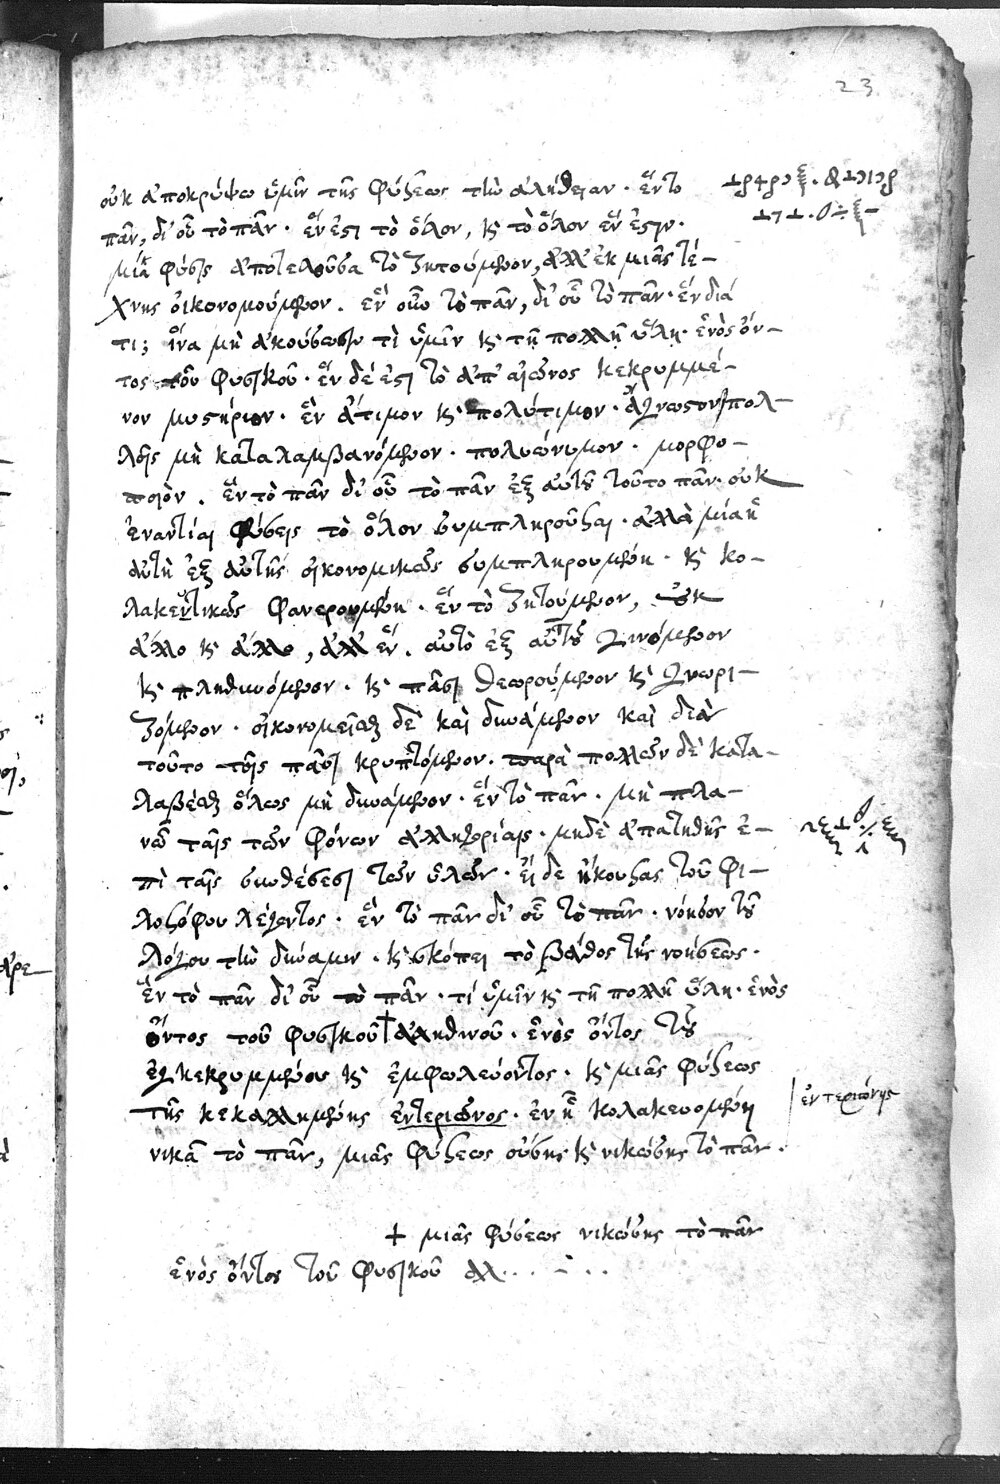 23
οὐκ ἀποκρύψω ὑμῖν τῆς φύσεως τὴν ἀλήθειαν · ἓν τὸ
πᾶν, δι' οὗ τὸ πᾶν · ἕν ἐστι τὸ ὅλον, κ τὸ ὅλον ἕν ἐστιν ·
μία φύσις ἀποτελοῦσα τὸ ζητούμενον, ἀλλ' ἐκ μιᾶς τέ-
χνης οἰκονομούμενον . ἓν οὖν τὸ πᾶν, δι' οὗ τὸ πᾶν · ἓν διά
τι; ἵνα μὴ ἀκούσωσιν τὶ ὑμῖν κ τῇ πολλῇ ὕλῃ · ἑνὸς ὄν-
τος τοῦ φυσικοῦ · ἓν δέ ἐστι τὸ ἀπ' αἰῶνος κεκρυμμέ-
νον μυστήριον · ἓν ἄτιμον κ πολύτιμον · ἄγνωστον πολ-
λοῖς μὴ καταλαμβανόμενον · πολυώνυμον · μορφο-
ποιὸν . ἓν τὸ πᾶν δι' οὗ τὸ πᾶν ἐξ αὐτοῦ τοῦτο πᾶν · οὐκ
ἐναντίαι φύσεις τὸ ὅλον συμπληροῦσαι · ἀλλὰ μία κ
αὐτὴ ἐξ αὐτῆς οἰκονομικῶς συμπληρουμένη · κ κο-
λακευτικῶς φανερουμένη · ἓν τὸ ζητούμενον, οὐκ
ἄλλο κ ἄλλο, ἀλλ' ἕν . αὐτὸ ἐξ αὐτοῦ γινόμενον
κ πληθυνόμενον · κ πᾶσι θεωρούμενον κ γνωρι-
ζόμενον · οἰκονομεῖσθαι δὲ καὶ δυνάμενον καὶ διὰ
τοῦτο τοῖς πᾶσι κρυπτόμενον · παρὰ πολλῶν δὲ κατα-
λαβέσθαι ὅλως μὴ δυνάμενον · ἓν τὸ πᾶν · μὴ πλα-
νῶ ταῖς τῶν φόνων ἀλληγορίαις · μηδὲ ἀπατηθῇς ἐ-
πὶ ταῖς συνθέσεσι τῶν ὑλῶν · εἰ δε ἤκουσας τοῦ φι-
λοσόφου λέγοντος · ἓν τὸ πᾶν δι' οὗ τὸ πᾶν · νόησον τοῦ
λόγου τὴν δύναμιν · κ σκόπει τὸ βάθος τῆς νοήσεως ·
ἓν τὸ πᾶν δι' οὗ τὸ πᾶν · τί ὑμῖν κ τῇ πολλῇ ὕλῃ · ἑνὸς
ὄντος τοῦ φυσικοῦ + ἀληθινοῦ · ἑνὸς ὄντος τοῦ
ἐγκεκρυμμένου κ ἐμφωλεύοντος · κ μιᾶς φύσεως
τῆς κεκαλλημένης ἐντεριῶνος · ἐν ᾗ κολακευομένη
ἐντεριώνης
νικᾶ τὸ πᾶν, μιᾶς φύσεως οὔσης κ νικώσης τὸ πᾶν .
+ μιᾶς φύσεως νικώσης τὸ πᾶν
ἑνὸς ὄντος τοῦ φυσικοῦ ἀλ...